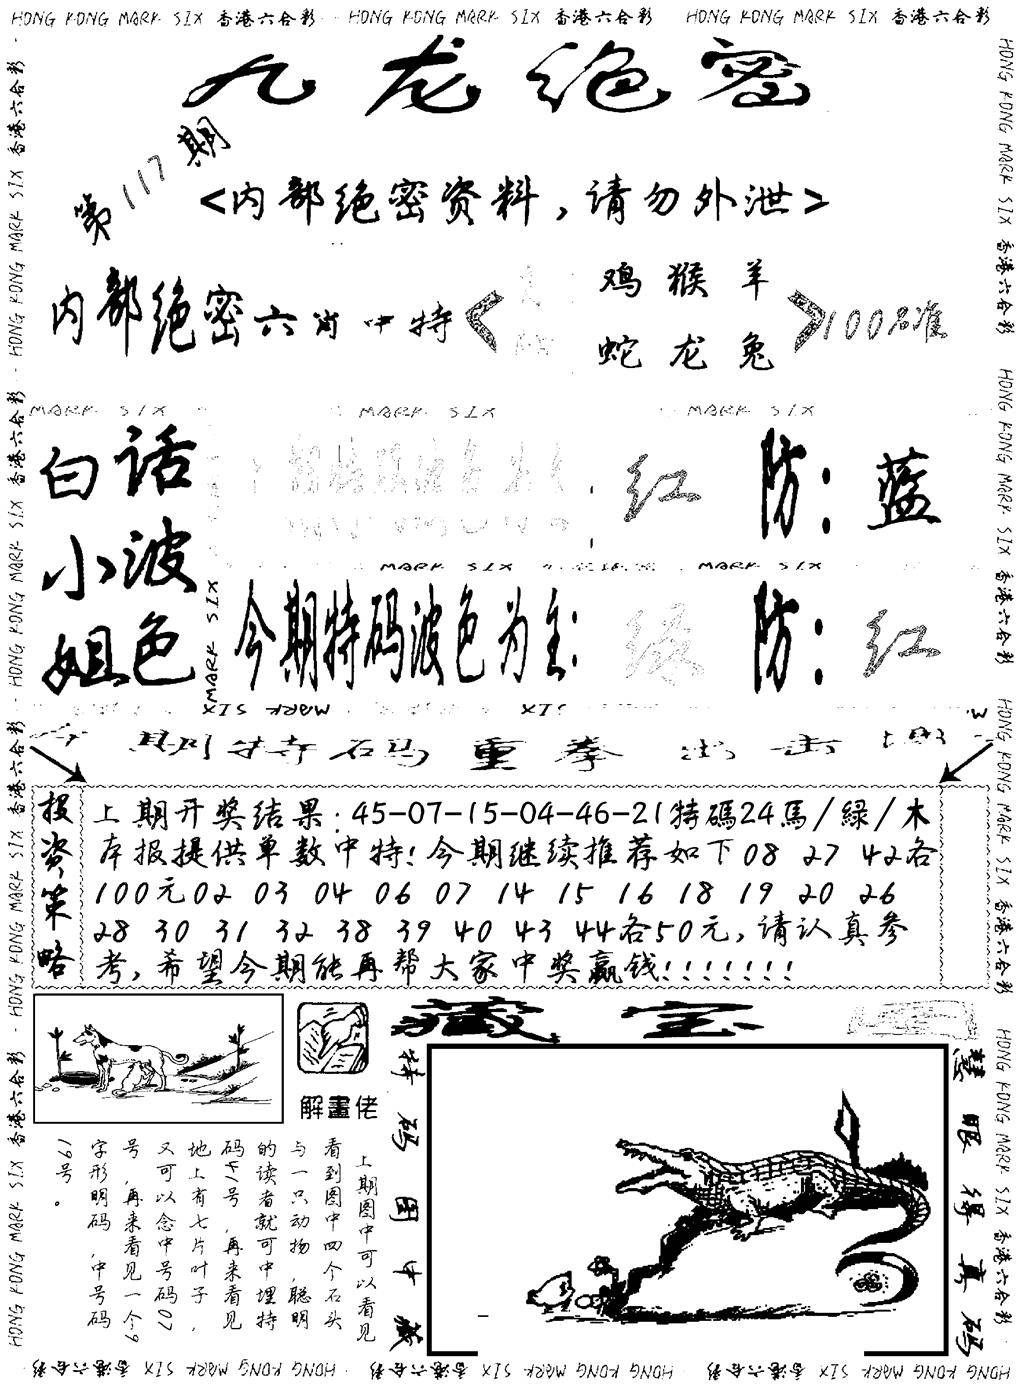 HONG KONG MARK SIX 香港六合彩 HONG KONG MARK SIX 香港六合彩 HONG KONG MARK SIX 香港六合彩
九龙绝密
第117期
<内部绝密资料,请勿外泄>
内部绝密六肖中特
鸡猴羊
蛇龙兔
100%准
MARK SIX MARK SIX MARK SIX
白话
小波
姐色
红 防:蓝
MARK SIX MARK SIX
今期特码波色为主:绿 防:红
MARK SIX
期特码重拳出击
投资策略
上期开奖结果:45-07-15-04-46-21特碼24馬/緑/木
本报提供单数中特!今期继续推荐如下08 27 42各
100元02 03 04 06 07 14 15 16 18 19 20 26
28 30 31 32 38 39 40 43 44各50元,请认真参
考,希望今期能再帮大家中奖赢钱!!!!!!!
藏宝图
解畫佬
特码图中藏
慧眼得真码
上期图中可以看见
看到图中四个石头
与一只动物,聪明
的读者就可中埋特
码47号,再来看见
地上有七片叶子,
又可以念中号码07
号,再来看见一个6
字形明码,中号码
19号。
HONG KONG MARK SIX 香港六合彩 HONG KONG MARK SIX 香港六合彩 HONG KONG MARK SIX 香港六合彩